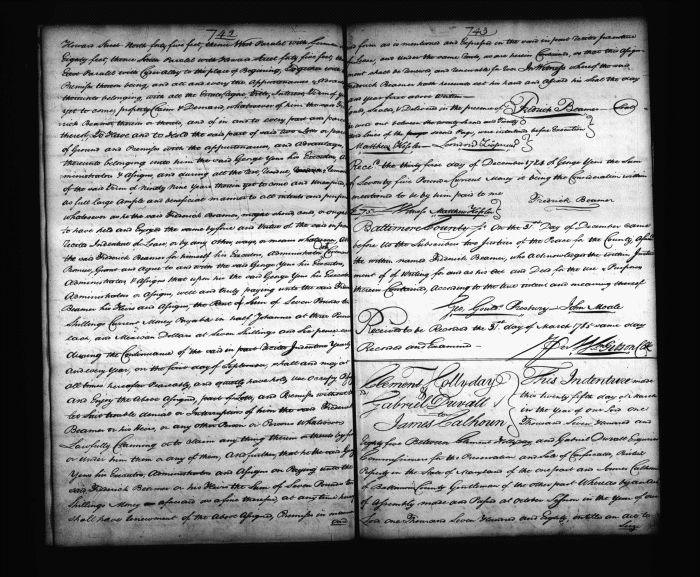 742
Howard Street North forty five feet, thence West Parallel with German
Eighty feet, thence South Parallel with Howard Street forty five feet, thence
East Parallel with Cowalley to the place of Beginning, Together with
Premises thereon being, and all and every the Appurtenances Advan
thereunto belonging, with all the Estate Right Title Interest Term of
yet to come, property Claim & Demand, whatsoever of him the said Fre
Beamer therein or thereto, and of in and to every part and par
thereof, To Have and to Hold the said part of said two Lots or par
of Ground and Premises with the Appurtenances, and Advantages
thereunto belonging unto him the said George Yeon his Executors, A
ministrators & Assigns and during all the Rest, Residue,
of the said Term of Ninety Nine Years thereon yet to come and unexpired,
as full large Ample and beneficial manner to all intents and purposes
whatsoever as he the said Fredrick Beamer, might should and or ought
to have held and Enjoyed the same before and Virtue of the said in part
recited Indenture of Lease, or by any other ways or means whatsoever
the said Fredrick Beamer for himself his Executors, Administrators
Promise, Grant and Agree to and with the said George Yeon his Executors,
Administrators & Assigns that upon his the said George Yeon his Execut
Administrators or Assigns well and truly paying unto the said Fredrick
Beamer his Heirs and Assigns, the Rent or Sum of Seven Pounds ten
Shillings Current Money Payable in half Johannes at three Pounds
each, and Mexican Dollars at Seven Shillings and Six pence
during the Continuance of the said in part recited Indenture Yearly
And every year, on the four day of September, shall and may at
all times hereafter Peaceably and quietly have hold use Occupy
And Enjoy the Above Assigned, part of Lots, and Premises without
let Suit trouble denial or Interruption of him the said Fredrick
Beamer or his Heirs, or any other Person or Persons Whatsoever
Lawfully Claiming or to claim any thing therein or thereto by
or Under him them or any of them, And further, that he the said
Yeon his Executors, Administrators and Assigns or Paying unto the
said Fredrick Beamer or his Heirs the Sum of Seven Pounds ten
Shillings Money aforesaid as afore thereof, at any time here
shall have renewment of the Above Assigned, Premises in manner
and
743
and form as is mentioned and Expressed in the said in part recited Indenture
of Lease, and under the same Rents, as are herein Contained, so that this Assign
ment shall be Renewed, and renewable for ever In Witness whereof the said
Fredrick Beamer hath hereunto set his hand and Affixed his Seal the day
and year first above written
Signed, Sealed & Delivered in the presence of } Fredrick Beamer (Seal)
Matthew Hesler
Recd. the thirty first day of December 1784 of George Yeon the Sum
of Seventy five Pounds Current Money it being the Consideration within
mentioned to be by him paid to me
Fredrick Beamer
£75 Matthew Hesler
Baltimore County Ss. On the 31st Day of December came
before Us the Subscribers two Justices of the Peace for the County Afores
the within named Fredrick Beamer, who Acknowledged the within Instru
ment of Writing for and as his Act and Deed for the Use & Purposes
therein Contained, According to the true intent and meaning thereof
Geo. Gouldr. Presbury John Moale
Received to be Recorded the 31st day of March 1785 same day
Recorded and Examined Wm. Gibson Clk
Clement Hollyday
& Gabriel Duvall
to
James Calhoun
This Indenture made
this twenty fifth day of March
in the Year of our Lord One
Thousand Seven Hundred and
Eighty five Between Clement Hollyday and Gabriel Duvall Esquires
Commissioners for the Preservation and Sale of Confiscated, British
Property in the State of Maryland of the one part and James Calhoun
of Baltimore County Gentleman of the other part Whereas by an Act
of Assembly made and Passed at October Session in the Year of our
Lord one Thousand Seven Hundred and Eighty, entitled an Act to
Seize